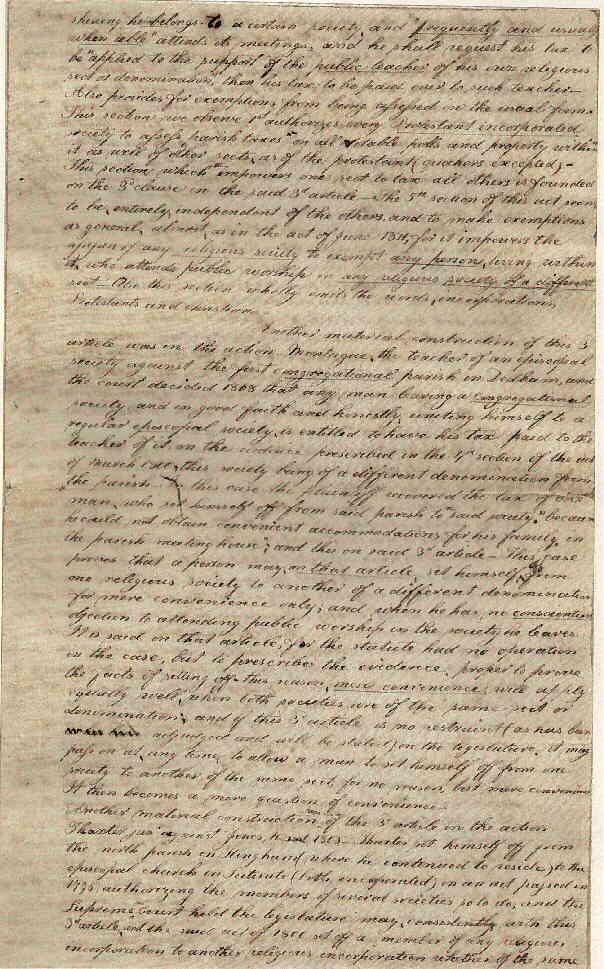 shewing he belongs to a certain society, and "frequently and usually
when able" attends its meetings, and he shall request his tax to
be "applied to the support of the public teacher of his own religious
sect or denomination", then his tax to be paid over to such teacher—
Also provides for exemptions from being assessed in the usual form.
This section we observe 1st authorizes every Protestant incorporated
society to assess parish taxes "on all ratable polls and property within
it as well of other sects, as of the protestants (quakers excepted)—
This section, which empowers one sect to tax all others is founded
on the 3d clause in the said 3d article— The 5th section of this act seems
to be entirely independent of the others and to make exemptions
as general, almost, as in the act of June 1811, for it impowers the
of any religious society to exempt any person, living within
it, who attends public worship in any religious society of a different
sect— Also this section wholly omits the words, incorporations,
Protestants and christian.
Another material construction of this 3
article was in the action Montague, the teacher of an episcopal
society against the first congregational parish in Dedham, and
the court decided 1808 that any man leaving a congregational
society and in good faith and honestly, uniting himself to a
regular episcopal society, is entitled to have his tax paid to the
teacher of it on the evidence prescribed in the 4th section of the act
of March 1800, this society being of a different denomination from
the parish— In this case the plaintiff recovered the tax of
man, who set himself off from said parish to "said society," because
he could not obtain convenient accommodations for his family, in
the parish meeting house; and this on said 3d article— This case
proves that a person may, on that article, set himself off from
one religious society to another of a different denomination
for mere convenience only; and when he has no conscientious
objection to attending public worship in the society he leaves.
It is said on that article, for the statute had no operation
in the case, but to prescribe the evidence, proper to prove
the facts of setting off— this reason, mere convenience, will apply
equally well, when both societies are of the same sect or
denomination; and if this 3d article is no restraint (as has been
adjudged and will be stated) on the legislature, it may
pass an act, any time, to allow a man to set himself off from one
society to another of the same sect, for no reason, but mere convenience
It then becomes a mere question of convenience—
Another material construction of the 3d article in the action
Thaxter against Jones 1803— Thaxter set himself off from
the north parish in Hingham, where he continued to reside, to the
episcopal church in Scituate (both incorporated) on an act passed in
1795 authorizing the members of several societies so to do, and the
Supreme Court held the legislature may, consistently with this
3d article and the said act of 1800 set off a member of any religious
incorporation to another religious incorporation whether of the same